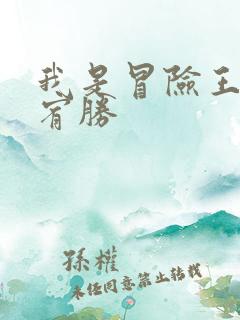 我是冒險王
宵勝
孫權
未經同意禁止轉載